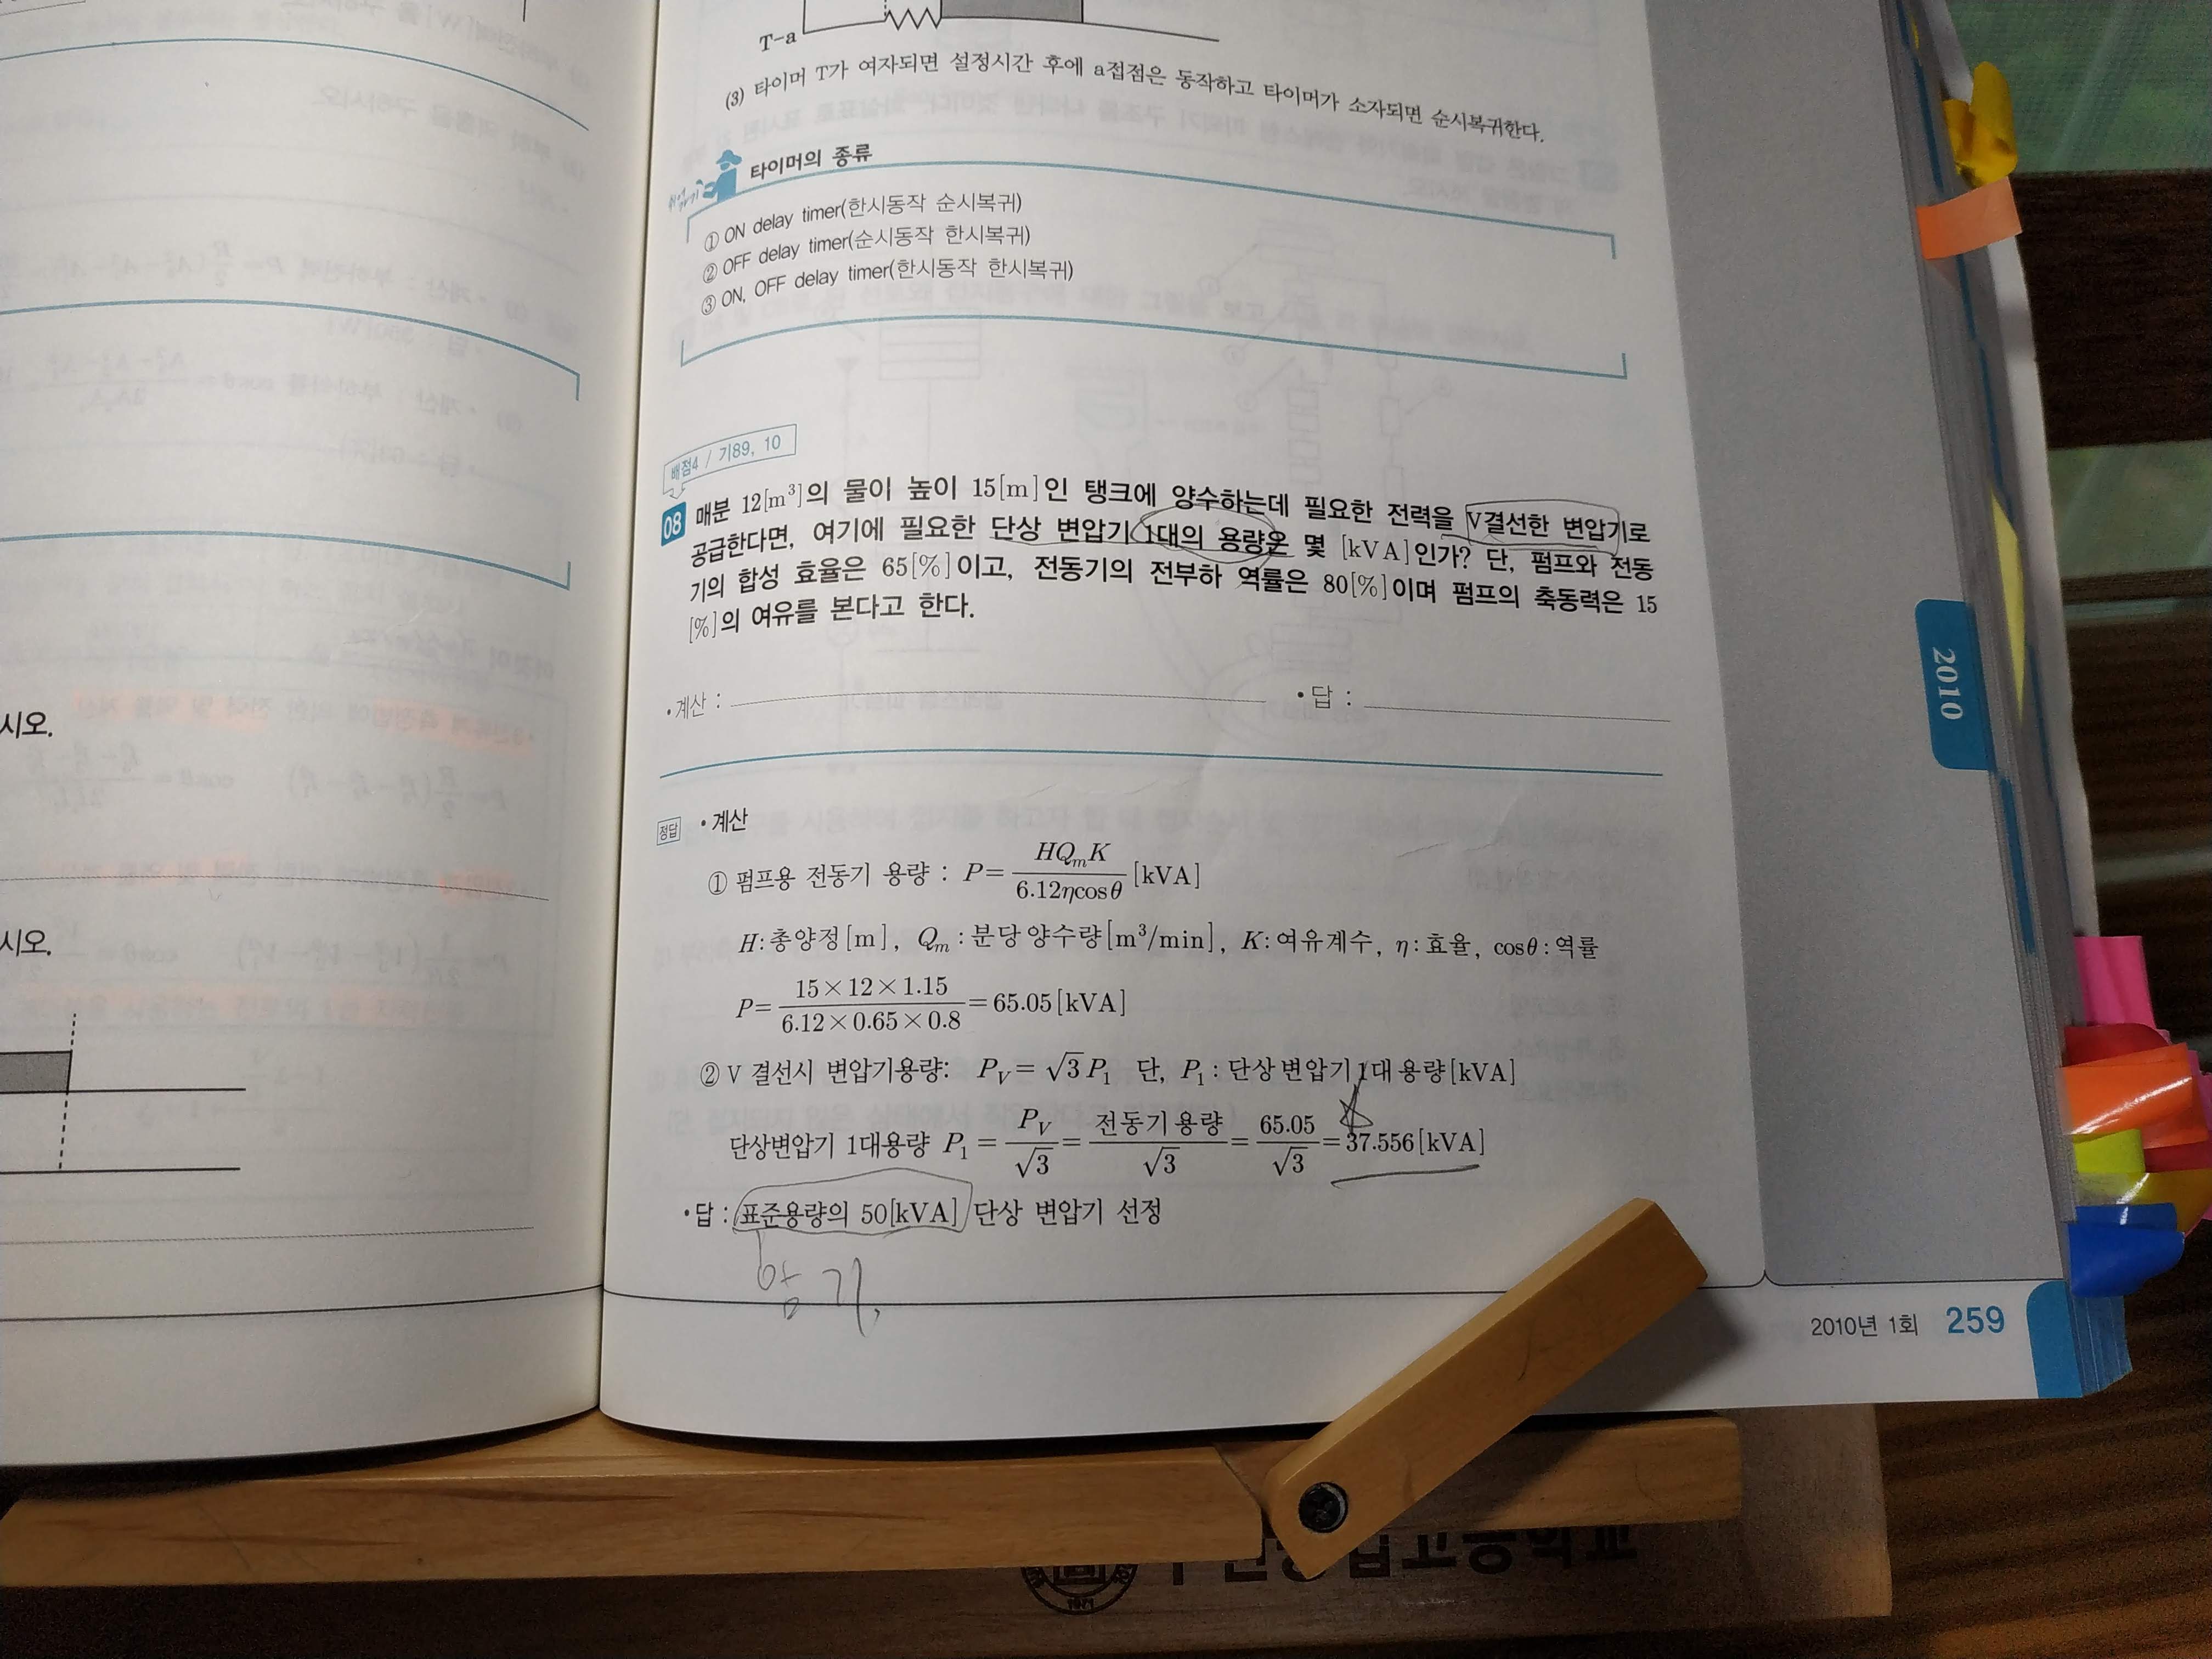 시오.
시오.
T-a
(3) 타이머 T가 여자되면 설정시간 후에 a접점은 동작하고 타이머가 소자되면 순시복귀한다.
타이머의 종류
① ON delay timer(한시동작 순시복귀)
② OFF delay timer(순시동작 한시복귀)
③ ON, OFF delay timer(한시동작 한시복귀)
배점4 / 기89, 10
08 매분 12[m³]의 물이 높이 15[m]인 탱크에 양수하는데 필요한 전력을 V결선한 변압기로
공급한다면, 여기에 필요한 단상 변압기 1대의 용량은 몇 [kVA]인가? 단, 펌프와 전동
기의 합성 효율은 65[%]이고, 전동기의 전부하 역률은 80[%]이며 펌프의 축동력은 15
[%]의 여유를 본다고 한다.
•계산 : •답 :
정답 •계산
① 펌프용 전동기 용량 : P = HQₘK / 6.12ηcosθ [kVA]
H:총양정[m], Qₘ:분당 양수량[m³/min], K:여유계수, η:효율, cosθ:역률
P = 15×12×1.15 / 6.12×0.65×0.8 = 65.05[kVA]
② V 결선시 변압기용량: P_V = √3 P₁ 단, P₁ : 단상 변압기 1대 용량[kVA]
단상변압기 1대용량 P₁ = P_V / √3 = 전동기 용량 / √3 = 65.05 / √3 = 37.556[kVA]
•답 : 표준용량의 50[kVA] 단상 변압기 선정
암기.
2010
2010년 1회 259